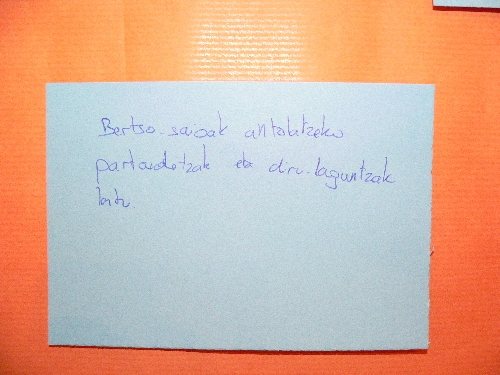 Bertso-saioak antolatzeko
partaidetzak eta diru-laguntzak
lortu.